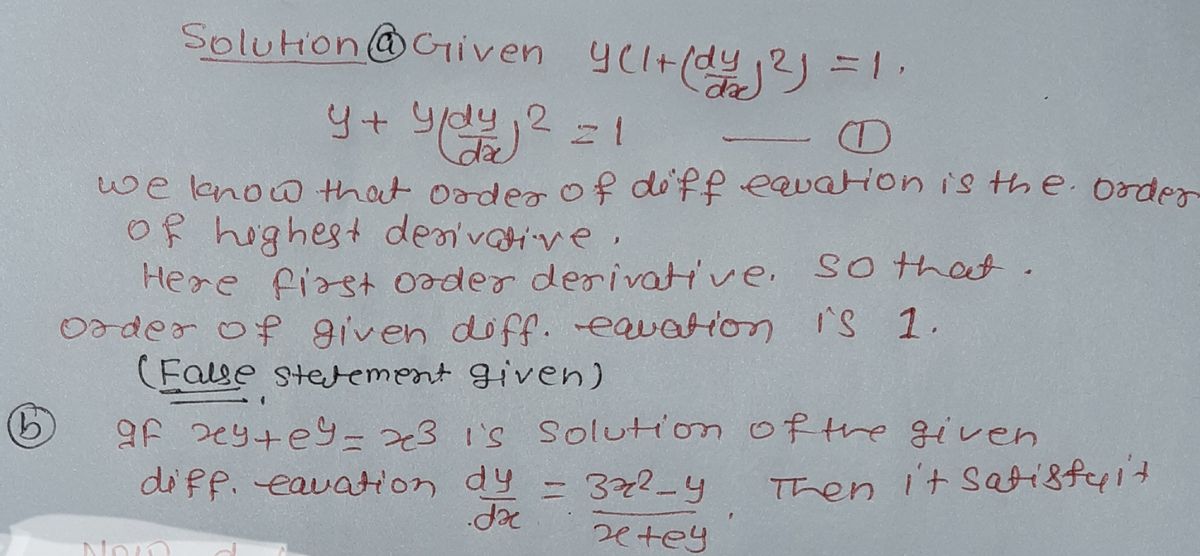 Solution ⓐ Given y(1+(dy/dx)²) = 1.
y + y(dy/dx)² = 1 — ①
we know that order of diff equation is the order
of highest derivative.
Here first order derivative. so that.
order of given diff. equation is 1.
(False statement given)
ⓑ If xy+e^y = x³ is solution of the given
diff. equation dy/dx = (3x²-y)/(x+e^y). Then it satisfy it